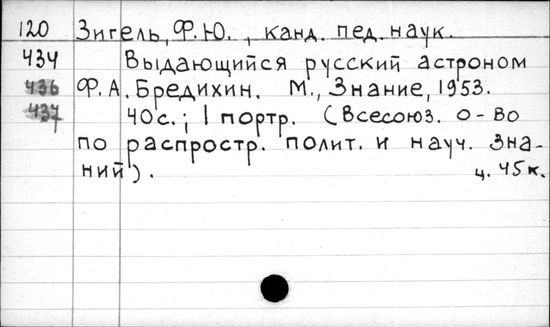 120 Зигель, Ф.Ю., канд. пед. наук.
434 Выдающийся русский астроном
436 Ф.А. Бредихин. М., Знание, 1953.
437 40с.; 1 портр. (Всесоюз. о-во
по распростр. полит. и науч. зна-
ний). ц. 45к.